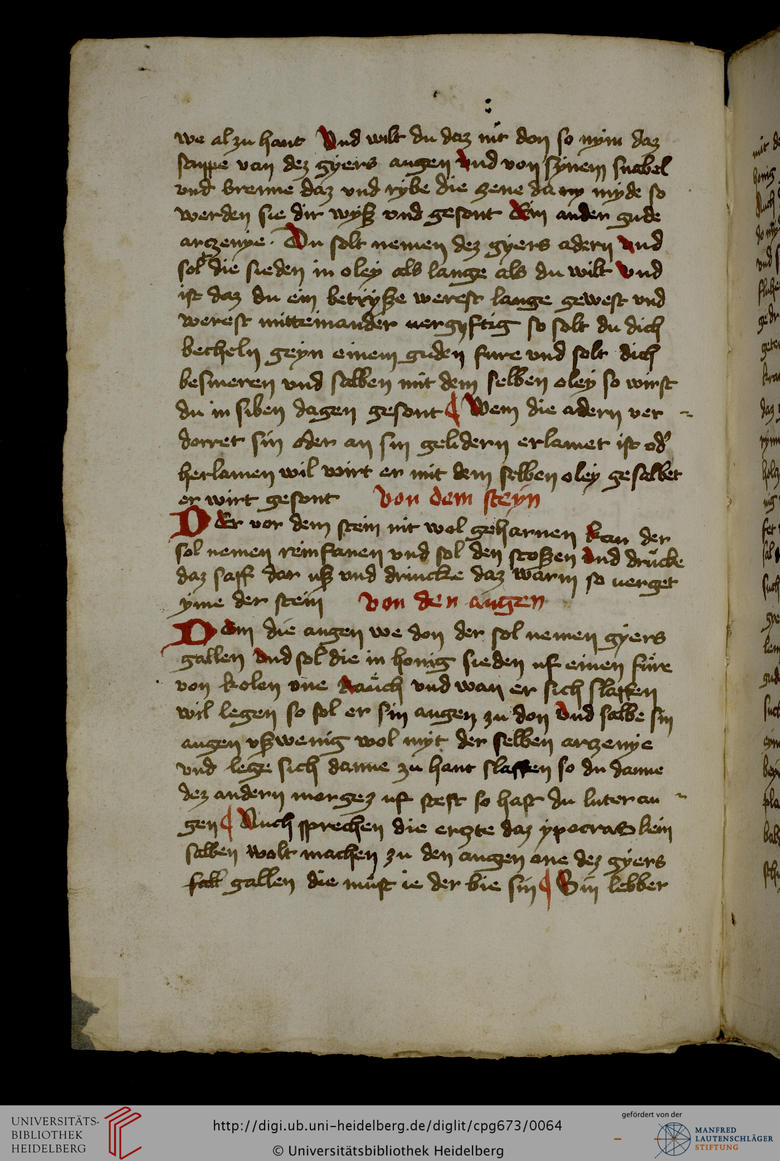 we al zu hant Vnd wilt du daz nit don so nym daz
sauppe van dez gyers augen vnd von synem snabel
vnd brenne daz vnd rybe die zene da my myde so
werden sie dir wyß vnd gesont Ein ander gude
arczenye. Du solt nemen dez gyers adern vnd
solt die sieden in oley als lange als du wilt vnd
ist daz du ein betryße werest lange gewest vnd
werest mitteinander uergyftig so solt du dich
becheln geyn einem guden fure vnd solt dich
besmeren vnd salben mit dem selben oley so wirst
du in siben dagen gesont Wem die adern ver
dorret sin oder an sin gelidern erlamet ist od'
herlamen wil wirt er mit dem selben oley gesalbet
er wirt gesont von dem steyn
DEr vor dem stein nit wol geharnen kan der
sol nemen reinfanen vnd sol den stoßen vnd drucke
daz saff dar uß vnd drincke daz warm so uerget
yme der stein von den augen
DEm die augen we don der sol nemen gyers
gallen vnd sol die in honig sieden uf einen fure
von kolen one Rauch vnd wan er sich slaffen
wil legen so sol er sin augen zu don vnd salbe sin
augen vßwenig wol myt der selben arczenye
vnd lege sich danne zu hant slaffen so du danne
dez andern morgez uf stest so hast du luter au
gen Auch sprechen die erczte daz ypocras kein
salben wolt machen zu den augen one dez gyers
gallen die must ie der bie sin Sin lebber
UNIVERSITÄTS-
BIBLIOTHEK
HEIDELBERG
http://digi.ub.uni-heidelberg.de/diglit/cpg673/0064
© Universitätsbibliothek Heidelberg
gefördert von der
MANFRED
LAUTENSCHLÄGER
STIFTUNG